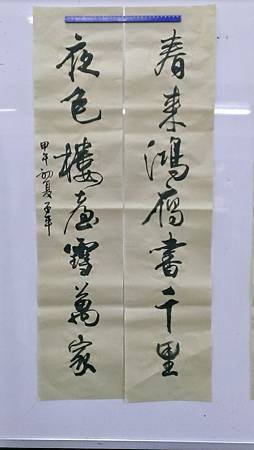 春来鴻雁書千里
夜色樓臺雪萬家
甲午初夏